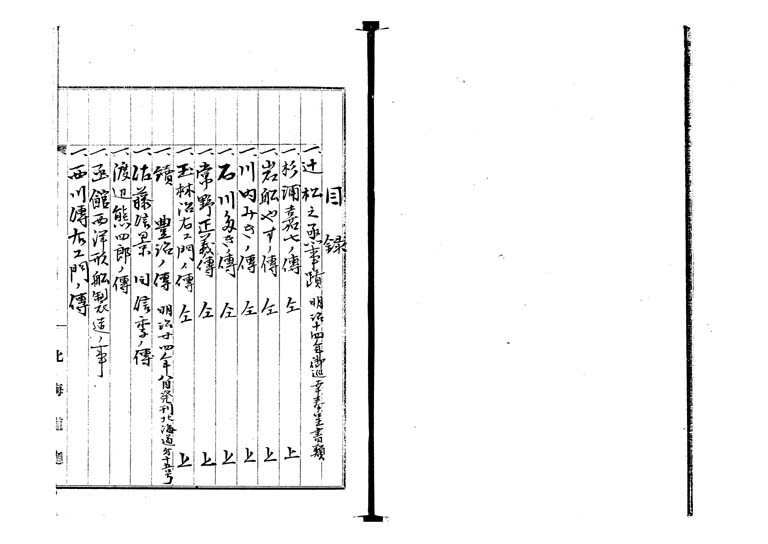 目録
一、辻松之丞事蹟 明治十四年御巡幸奉呈書類
一、杉浦嘉七ノ傳 仝 上
一、岩船やすノ傳 仝 上
一、川内みきノ傳 仝 上
一、石川たきノ傳 仝 上
一、常野正義傳 仝 上
一、玉林治右エ門ノ傳 仝 上
一、續豊治ノ傳 明治廿四年八月発刊北海道分十五号
一、佐藤信景同信季ノ傳
一、渡辺熊四郎ノ傳
一、函館西洋形船製造ノ事
一、西川傳右エ門ノ傳
北海道廳